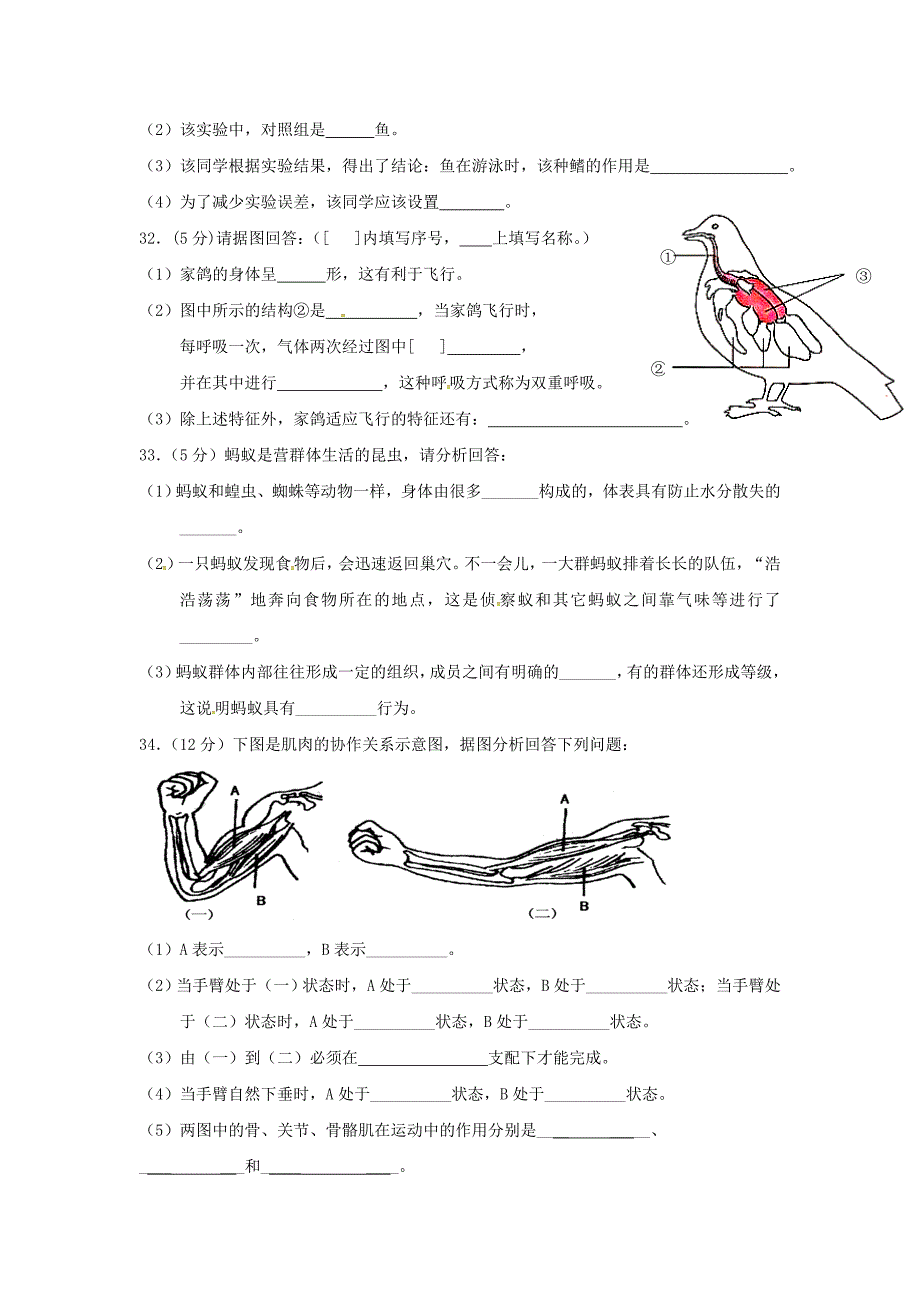 （2）该实验中，对照组是______鱼。
（3）该同学根据实验结果，得出了结论：鱼在游泳时，该种鳍的作用是_________________。
（4）为了减少实验误差，该同学应该设置________。
32．(5 分)请据图回答：（[   ]内填写序号，____上填写名称。）
（1）家鸽的身体呈______形，这有利于飞行。
（2）图中所示的结构②是___________，当家鸽飞行时，
每呼吸一次，气体两次经过图中[   ]_________，
并在其中进行_____________，这种呼吸方式称为双重呼吸。
（3）除上述特征外，家鸽适应飞行的特征还有：________________________。
①
③
②
33．（5 分）蚂蚁是营群体生活的昆虫，请分析回答：
（1）蚂蚁和蝗虫、蜘蛛等动物一样，身体由很多_______构成的，体表具有防止水分散失的
_______。
（2）一只蚂蚁发现食物后，会迅速返回巢穴。不一会儿，一大群蚂蚁排着长长的队伍，“浩
浩荡荡”地奔向食物所在的地点，这是侦察蚁和其它蚂蚁之间靠气味等进行了
_________。
（3）蚂蚁群体内部往往形成一定的组织，成员之间有明确的_______，有的群体还形成等级，
这说明蚂蚁具有__________行为。
34．（12 分）下图是肌肉的协作关系示意图，据图分析回答下列问题：
A
B
（一）
A
B
（二）
（1）A 表示__________，B 表示__________。
（2）当手臂处于（一）状态时，A 处于__________状态，B 处于__________状态；当手臂处
于（二）状态时，A 处于__________状态，B 处于__________状态。
（3）由（一）到（二）必须在________________支配下才能完成。
（4）当手臂自然下垂时，A 处于__________状态，B 处于__________状态。
（5）两图中的骨、关节、骨骼肌在运动中的作用分别是______________、
_____________和_________________。